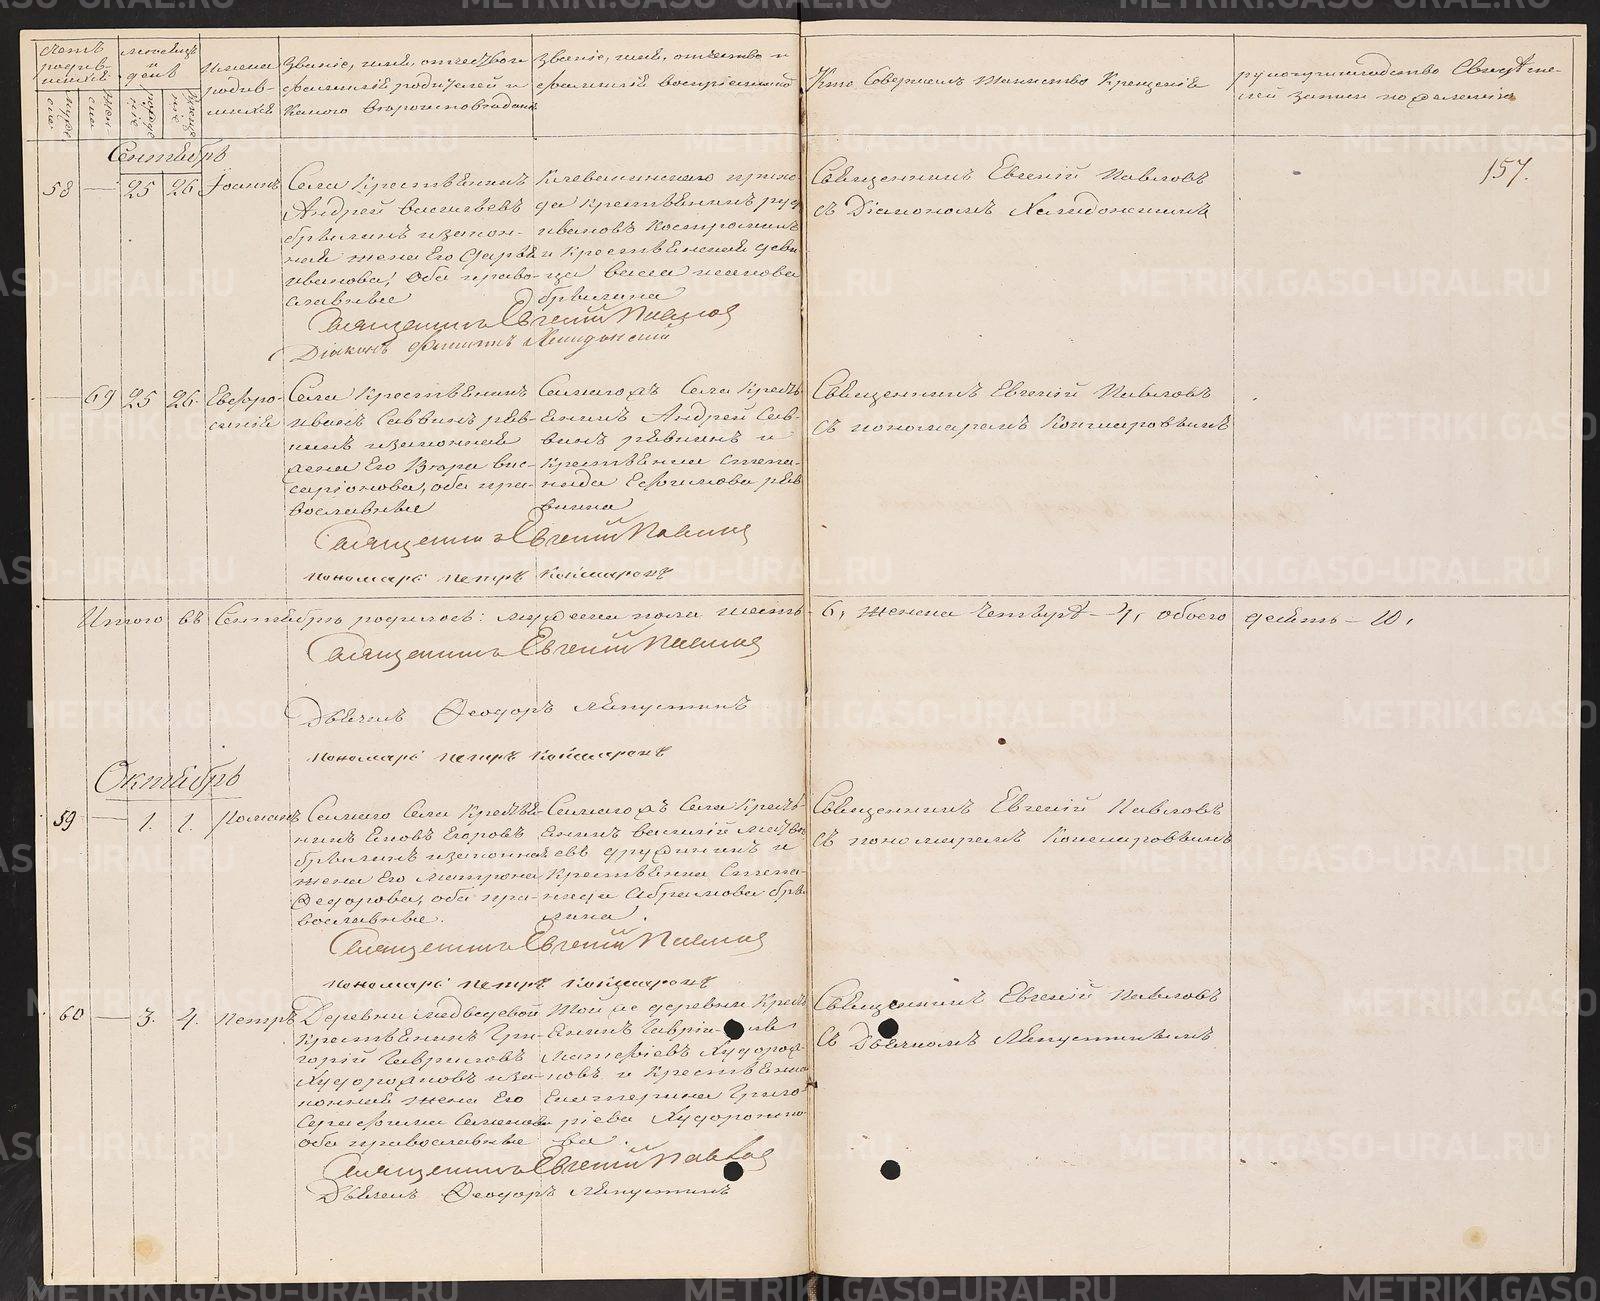 Счетъ родив-шихся
Мѣсяцъ и день
Имена родив-шихся
Званіе, имя, отчество и фамилія родителей и какого вѣроисповѣданія
Званіе, имя, отчество и фамилія воспріемниковъ
Кто совершалъ таинство крещенія
рукоприкладство свидѣте-лей записи по желанію
муже
ска
жен
ска
рожде
нія
креще
нія
157.
Сентябрь
58 — 25 26 Іоаннъ
Села Крестьянинъ
Андрей Васильевъ
брылинъ и закон-
ная жена Его Дарья
иванова, оба право-
славные
Клевакинскаго прихо
да Крестьянинъ
ивановъ Костроминъ
и Крестьянская деви
ца Васса иванова
брылина
Священникъ Евгеній Павловъ
съ Діакономъ Халидонскимъ
Священникъ Евгеній Павловъ
Діаконъ Филиппъ Халидонскій
— 69 25 26 Евфро-
синія
Села Крестьянинъ
иванъ Саввинъ рѣв-
кинъ и законная
жена Его Вѣра вис-
саріонова, оба пра-
вославные
Самаго жъ Села Кресть
янинъ Андрей Сав-
винъ рѣвкинъ и
Крестьянка степа-
нида Ефимова рѣв
кина
Священникъ Евгеній Павловъ
съ пономаремъ Кокшаровымъ
Священникъ Евгеній Павловъ
пономарь петръ Кокшаровъ
Итого въ Сентябрѣ родилось: мужеска пола шесть 6, женска четыре — 4, обоего десять — 10,
Священникъ Евгеній Павловъ
Дьячекъ Ѳеодоръ Ляпустинъ
пономарь петръ Кокшаровъ
Октябрь
59 — 1. 1. Романъ
Самаго Села Крестья
нинъ Іовъ Егоровъ
брылинъ и законная
жена Его матрона
Ѳедорова, оба пра-
вославные.
Самаго жъ Села Кресть-
янинъ василій Матвѣ
евъ дружининъ и
Крестьянка Степа-
нида Абрамова бры
лина.
Священникъ Евгеній Павловъ
съ пономаремъ Кокшаровымъ
Священникъ Евгеній Павловъ
пономарь петръ Кокшаровъ
60 — 3. 4. петръ
Деревни медведевой
Крестьянинъ Гри-
горій Гавриловъ
Худорожковъ и за-
конная жена Его
Серафима Семенова
оба православные
Той же деревни Кресть
янинъ
Матвіевъ Худорож-
ковъ и Крестьянка
Екатерина Григо-
ріева Худорожко-
ва.
Священникъ Евгеній Павловъ
съ Дьячкомъ Ляпустинымъ
Священникъ Евгеній Павловъ
Дьячекъ Ѳеодоръ Ляпустинъ